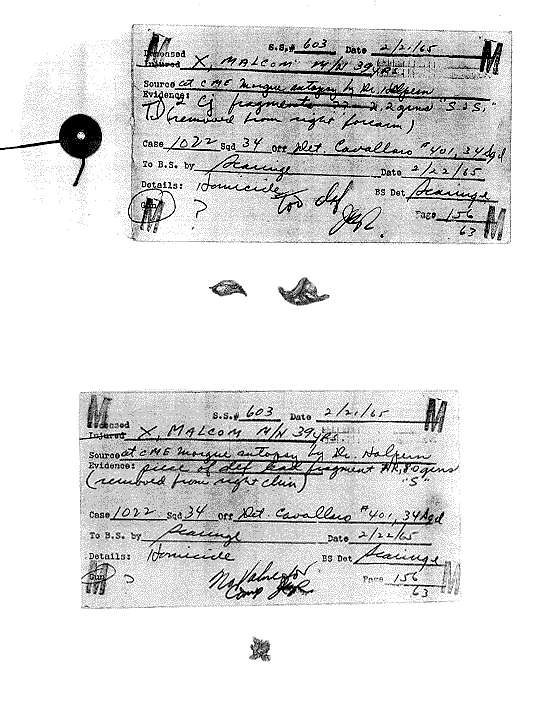 M M
S.S.# 603 Date 2/21/65
Deceased
Injured X, MALCOM M/N 39 YRS.
Source at CME Morgue autopsy by Dr. Halpern
Evidence: 2 CJ fragments 2.2 gms "S & S,"
(removed from right forearm)
Case 1022 Sqd 34 Off Det. Cavallaro #401, 34 Sqd
To B.S. by Scaringe Date 2/22/65
Details: Homicide BS Det Scaringe
Gun ? Too def
M Page 156 M
63
M M
S.S.# 603 Date 2/21/65
Deceased
Injured X, MALCOM M/N 39 YRS.
Source at CME Morgue autopsy by Dr. Halpern
Evidence: piece of def lead fragment .80 gms
(removed from right chin) "S"
Case 1022 Sqd 34 Off Det. Cavallaro #401, 34 Sqd
To B.S. by Scaringe Date 2/22/65
Details: Homicide BS Det Scaringe
Gun ? No Value for
Comp
M Page 156 M
63